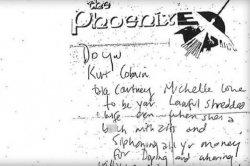 the
Phoenix
Do you
Kurt Cobain
take Courtney Michelle Love
to be your Lawful shredded
wife even when shes a
bitch with zits and
siphoning all yr money
for Doping and whoring